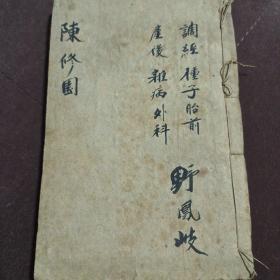 調經 種子 胎前
產後 雜病 外科
野鳳岐
陳修園